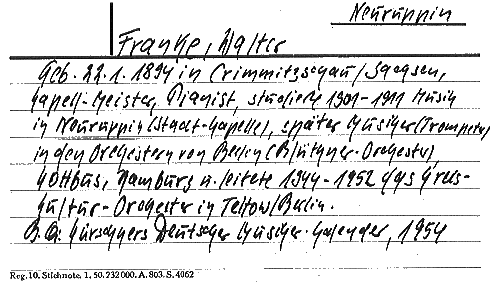 Neuruppin
Franke, Walter
Geb. 22.1.1894 in Crimmitzschau/Sachsen,
Kapell-Meister, Pianist, studierte 1901-1911 Musik
in Neuruppin (Stadt-Kapelle), später Musiker (Trompete)
in den Orchestern von Berlin (Blüthner-Orchester),
Cottbus, Hamburg u. leitete 1944-1952 das Kreis-
Kultur-Orchester in Teltow/Berlin.
Kürschners Deutscher Musiker-Kalender, 1954
Reg. 10. Stichnote. 1, 50. 232000. A. 803. S. 4062